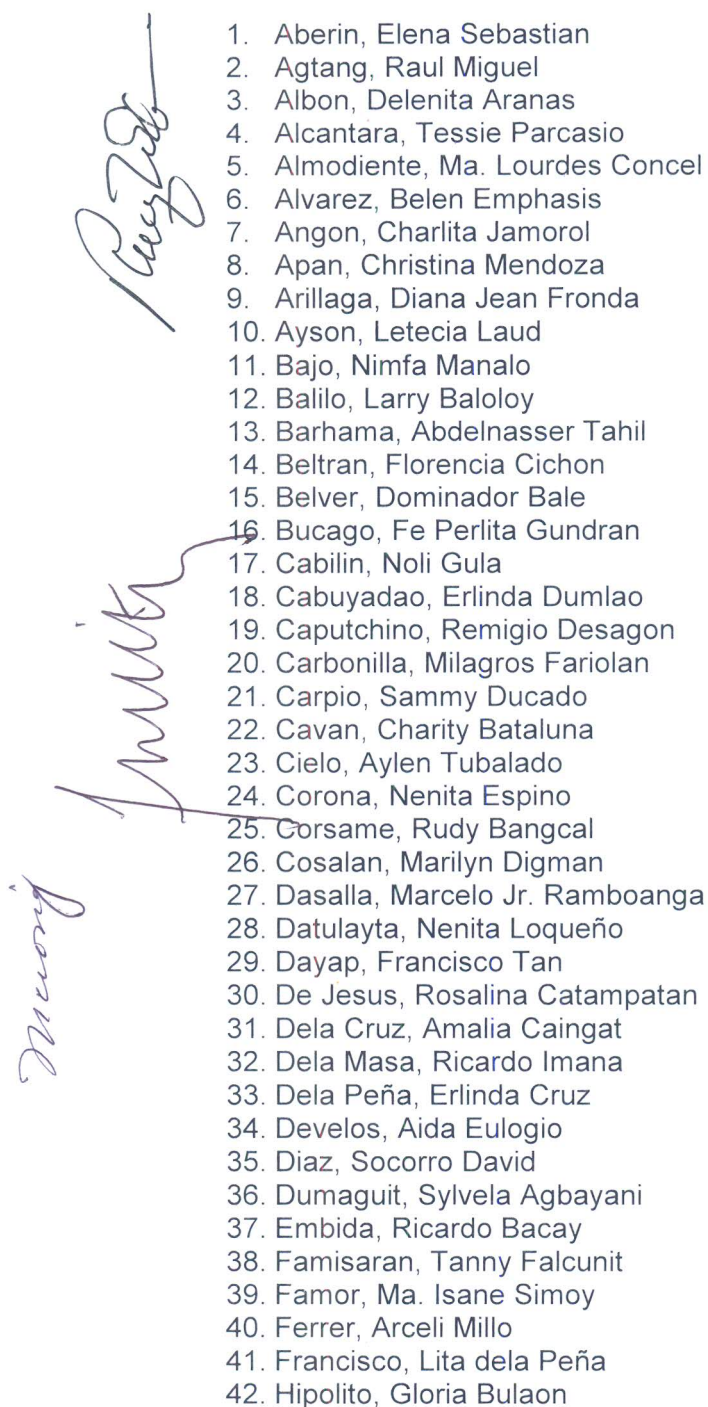 1. Aberin, Elena Sebastian
2. Agtang, Raul Miguel
3. Albon, Delenita Aranas
4. Alcantara, Tessie Parcasio
5. Almodiente, Ma. Lourdes Concel
6. Alvarez, Belen Emphasis
7. Angon, Charlita Jamorol
8. Apan, Christina Mendoza
9. Arillaga, Diana Jean Fronda
10. Ayson, Letecia Laud
11. Bajo, Nimfa Manalo
12. Balilo, Larry Baloloy
13. Barhama, Abdelnasser Tahil
14. Beltran, Florencia Cichon
15. Belver, Dominador Bale
16. Bucago, Fe Perlita Gundran
17. Cabilin, Noli Gula
18. Cabuyadao, Erlinda Dumlao
19. Caputchino, Remigio Desagon
20. Carbonilla, Milagros Fariolan
21. Carpio, Sammy Ducado
22. Cavan, Charity Bataluna
23. Cielo, Aylen Tubalado
24. Corona, Nenita Espino
25. Corsame, Rudy Bangcal
26. Cosalan, Marilyn Digman
27. Dasalla, Marcelo Jr. Ramboanga
28. Datulayta, Nenita Loqueño
29. Dayap, Francisco Tan
30. De Jesus, Rosalina Catampatan
31. Dela Cruz, Amalia Caingat
32. Dela Masa, Ricardo Imana
33. Dela Peña, Erlinda Cruz
34. Develos, Aida Eulogio
35. Diaz, Socorro David
36. Dumaguit, Sylvela Agbayani
37. Embida, Ricardo Bacay
38. Famisaran, Tanny Falcunit
39. Famor, Ma. Isane Simoy
40. Ferrer, Arceli Millo
41. Francisco, Lita dela Peña
42. Hipolito, Gloria Bulaon